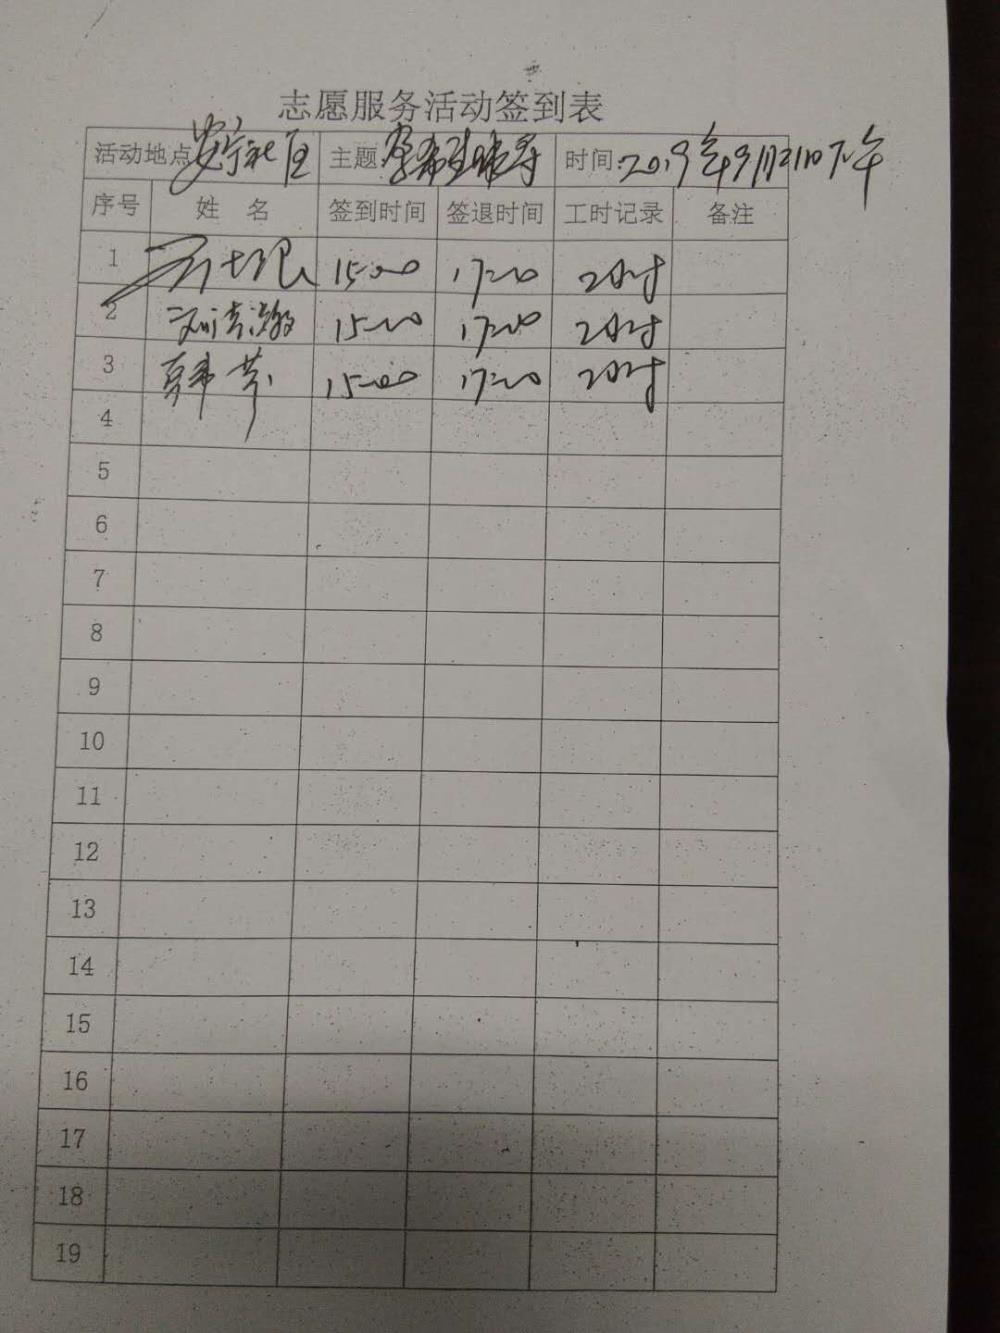 志愿服务活动签到表
活动地点 安宁社区 主题 时间:2019年9月21日下午
序号 姓 名 签到时间 签退时间 工时记录 备注
1 15:00 17:00 2小时
2 15:00 17:00 2小时
3 15:00 17:00 2小时
4
5
6
7
8
9
10
11
12
13
14
15
16
17
18
19